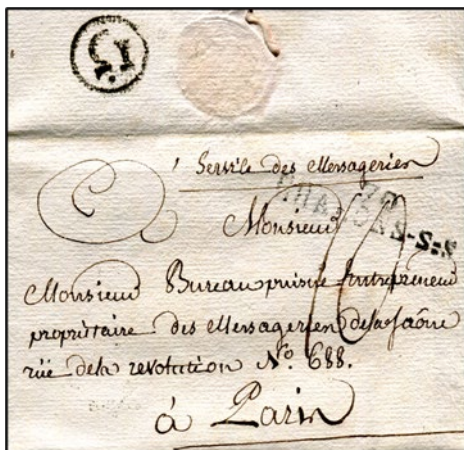 15
Service des Messageries
70
CHALONS-S-S
Monsieur
Monsieur Bureau puiné Entrepreneur
propriétaire des Messageries de la Saône
rüe de la revolution N.o 688.
à Paris